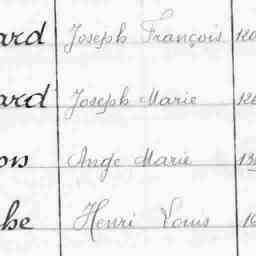 ard Joseph François 120
ard Joseph Marie 12
on Ange Marie 13
he Henri Louis 1